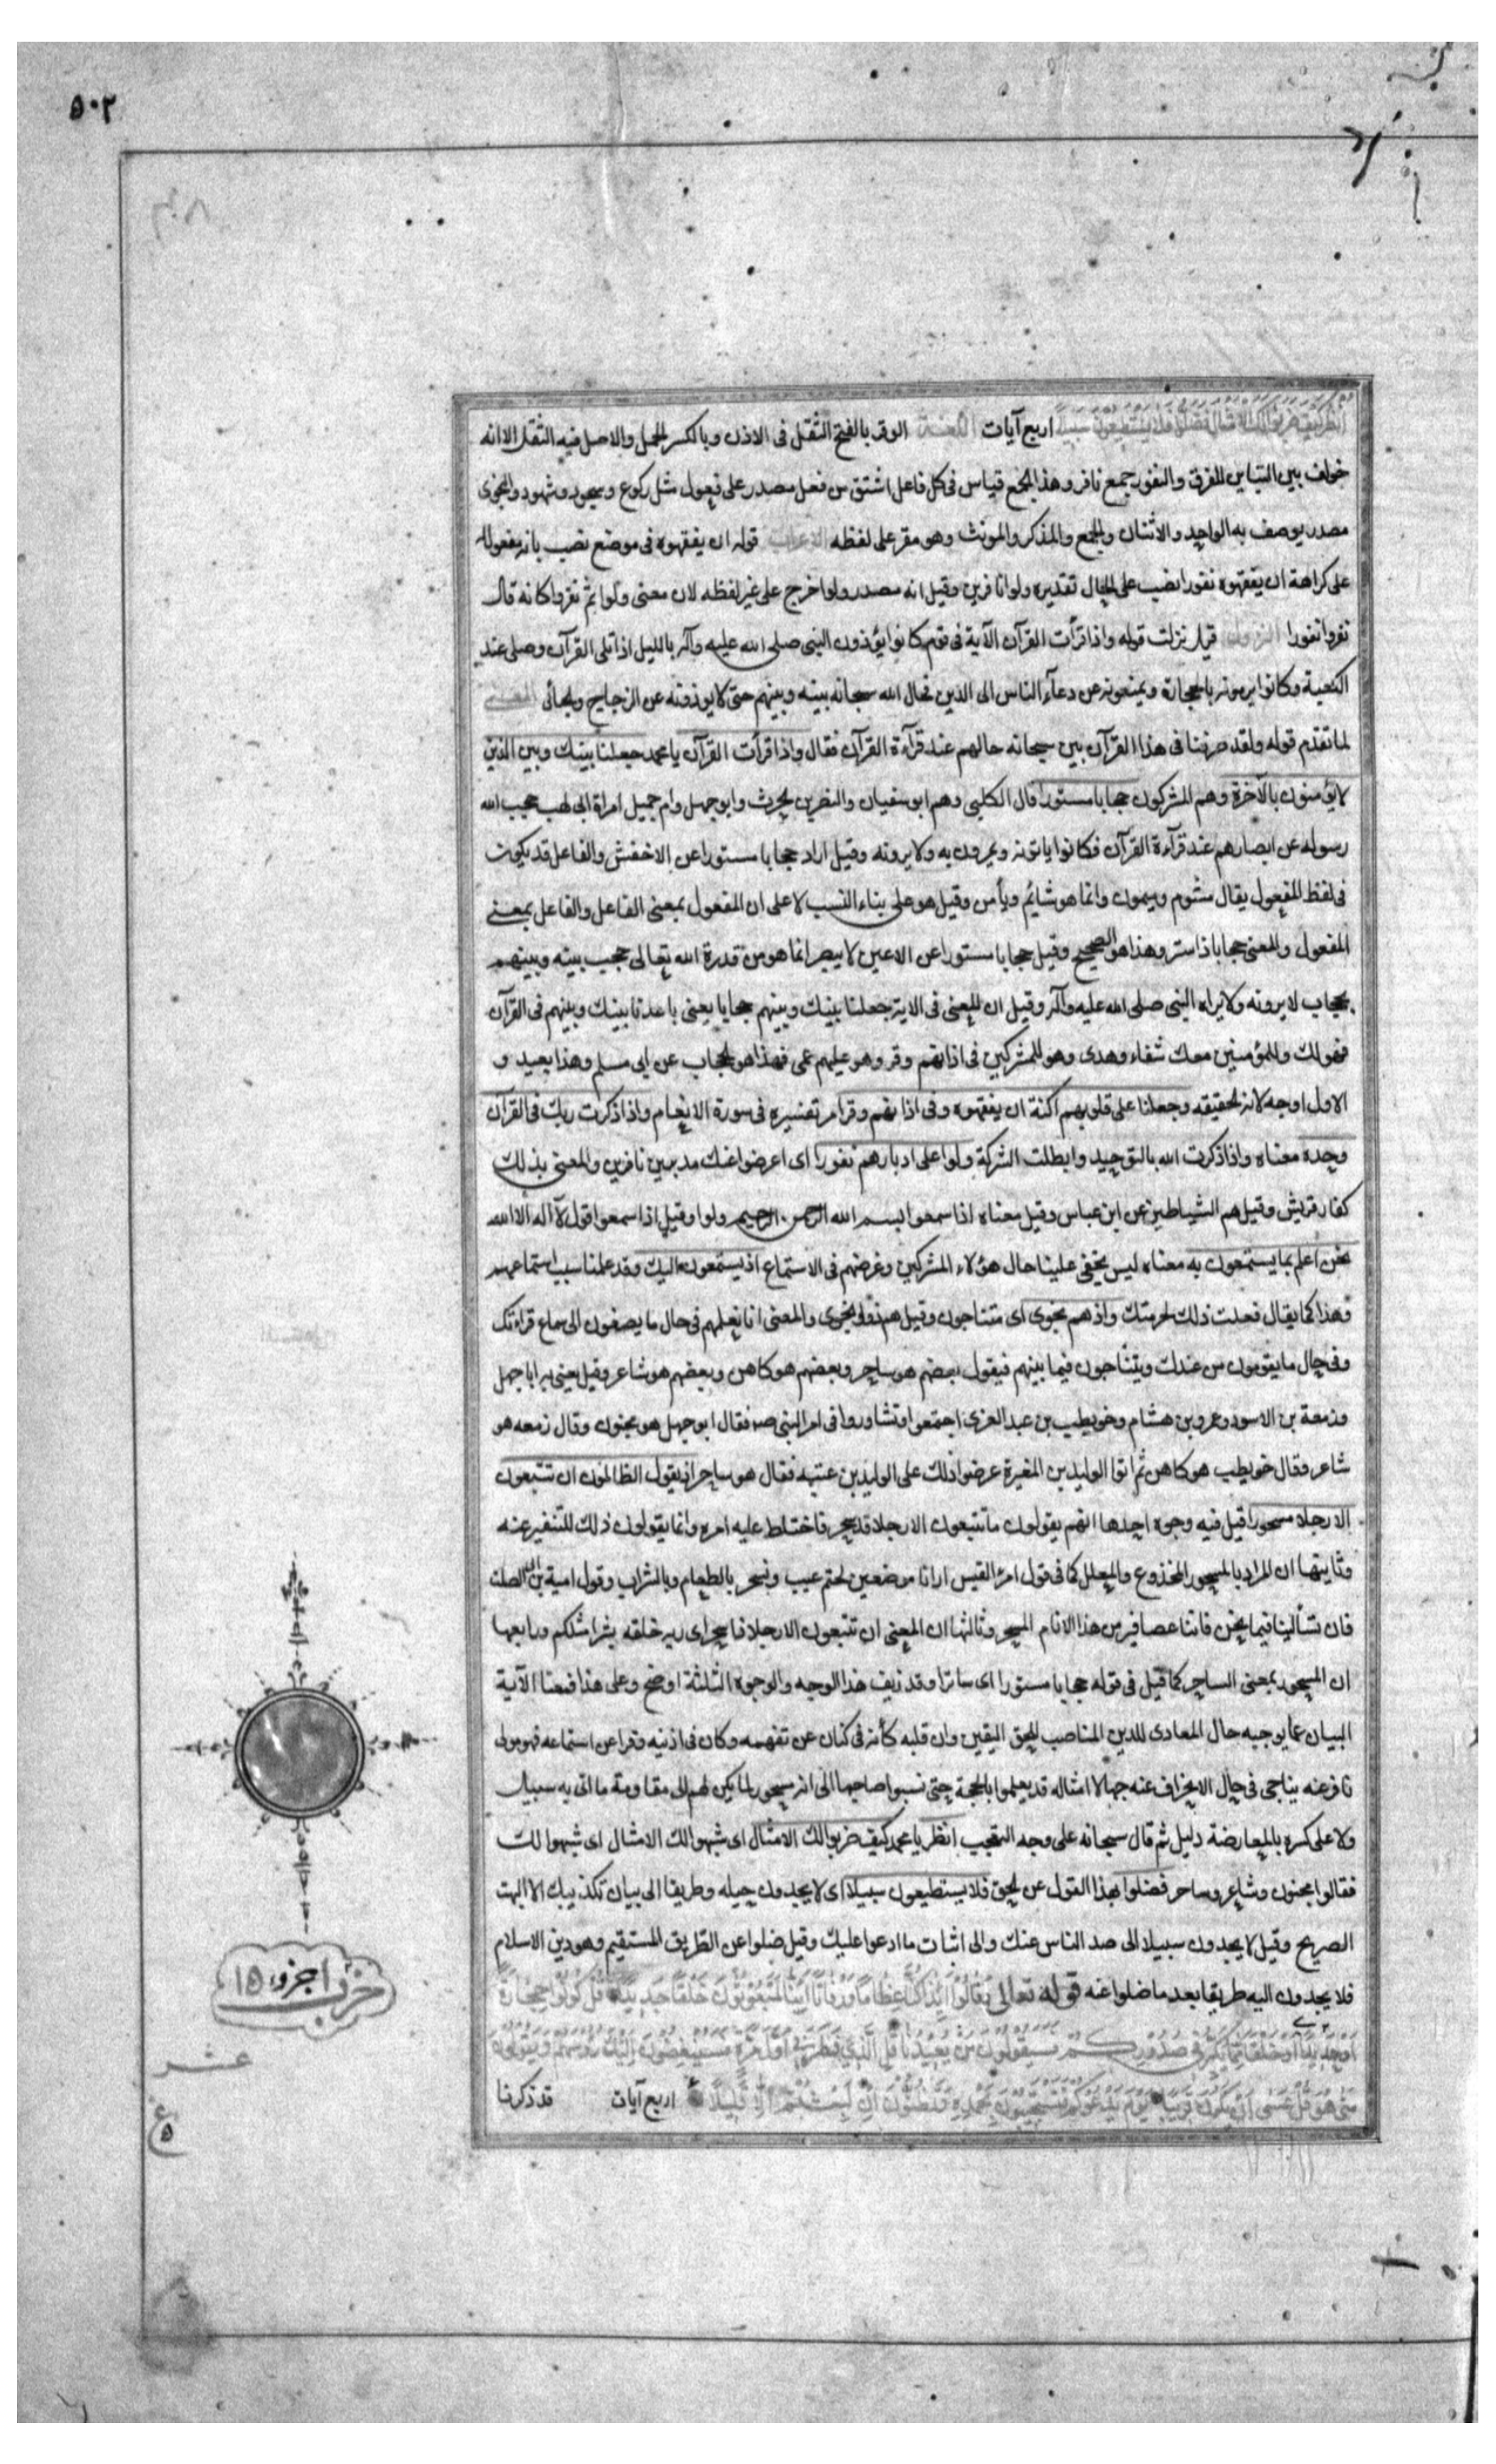 ٥٠٢
انظر كيف ضربوا لك الامثال فضلوا فلا يستطيعون سبيلا اربع آيات اللغة الوقر بالفتح الثقل فى الاذن وبالكسر الحمل والاصل فيه الثقل الا انه
خولف بين البنايين للفرق والنفور جمع نافر وهذا الجمع قياس فى كل فاعل اشتق من فعل مصدر على فعول مثل ركوع وسجود وشهود والنجوى
مصدر يوصف به الواحد والاثنان والجمع والمذكر والمونث وهو مقر على لفظه الاعراب قوله ان يفقهوه فى موضع نصب بانه مفعول له
على كراهة ان يفقهوه نفورا نصب على الحال تقديره ولوا نافرين وقيل انه مصدر ولوا خرج على غير لفظه لان معنى ولوا ثم نفروا كانه قال
نفروا نفورا النزول قيل نزلت قوله واذا قرأت القرآن الآية فى قوم كانوا يؤذون النبى صلى الله عليه وآله بالليل اذا تلى القرآن وصلى عند
الكعبة وكانوا يرمونه بالحجارة ويمنعونه عن دعآء الناس الى الدين فحال الله سبحانه بينه وبينهم حتى لا يوذونه عن الزجاج والجبائى المعنى
لما تقدم قوله ولقد صرفنا فى هذا القرآن بين سبحانه حالهم عند قرآءة القرآن فقال واذا قرأت القرآن يا محمد جعلنا بينك وبين الذين
لا يؤمنون بالآخرة وهم المشركون حجابا مستورا قال الكلبى وهم ابو سفيان والنضر بن الحرث وابو جهل وام جميل امراة ابى لهب حجب الله
رسوله عن ابصارهم عند قرآءة القرآن فكانوا ياتونه ويمرون به ولا يرونه وقيل اراد حجابا مستورا عن الاخفش والفاعل قد يكون
فى لفظ المفعول يقال مشوم وميمون وانما هو شائم ويأمن وقيل هو على بناء النسب لا على ان المفعول بمعنى الفاعل والفاعل بمعنى
المفعول والمعنى حجابا ذا ستر وهذا هو الصحيح وقيل حجابا مستورا عن الاعين لا يبصر انما هو من قدرة الله تعالى حجب بينه وبينهم
بحجاب لا يرونه ولا يراه النبى صلى الله عليه وآله وقيل ان المعنى فى الاية جعلنا بينك وبينهم حجابا يعنى باعدنا بينك وبينهم فى القرآن
فهو لك وللمؤمنين معك شفاء وهدى وهو للمشركين فى اذانهم وقر وهو عليهم عمى فهذا هو الحجاب عن ابى مسلم وهذا بعيد و
الاول اوجه لانه الحقيقه وجعلنا على قلوبهم اكنة ان يفقهوه وفى اذانهم وقرا مر تفسيره فى سورة الانعام واذا ذكرت ربك فى القرآن
وحده معناه واذا ذكرت الله بالتوحيد وابطلت الشركة ولوا على ادبارهم نفورا اى اعرضوا عنك مدبرين نافرين والمعنى بذلك
كفار قريش وقيل هم الشياطين عن ابن عباس وقيل معناه اذا سمعوا بسم الله الرحمن الرحيم ولوا وقيل اذا سمعوا قول لآ اله الا الله
نحن اعلم بما يستمعون به معناه ليس يخفى علينا حال هؤلاء المشركين وغرضهم فى الاستماع اذ يستمعون اليك وقد علمنا سبب استماعهم
وهذا كما يقال فعلت ذلك لحرمتك واذ هم نجوى اى متناجون وقيل هم ذوو نجوى والمعنى انا نعلمهم فى حال ما يصغون الى سماع قراءتك
وفى حال ما يقومون من عندك ويتناجون فيما بينهم فيقول بعضهم هو ساحر وبعضهم هو كاهن وبعضهم هو شاعر وقيل يعنى به ابا جهل
وزمعة بن الاسود وعمرو بن هشام وخويطب بن عبد العزى اجتمعوا وتشاوروا فى امر النبى صـ فقال ابو جهل هو مجنون وقال زمعه هو
شاعر وقال خويطب هو كاهن ثم اتوا الوليد بن المغيرة عرضوا ذلك على الوليد بن عتبه فقال هو ساحر اذ يقول الظالمون ان تتبعون
الا رجلا مسحورا قيل فيه وجوه احدها انهم يقولون ما تتبعون الا رجلا قد سحر فاختلط عليه امره وانما يقولون ذلك للتنفير عنه
وثانيها ان المراد بالمسحور المخدوع والمعلل كما فى قول امرئ القيس ارانا موضعين لحتم غيب ونسحر بالطعام وبالشراب وقول امية بن ابى الصلت
فان تسألينا فيما نحن فاننا عصافير من هذا الانام المسحر وثالثها ان المعنى ان تتبعون الا رجلا ذا سحر اى ريه خلقه بشرا مثلكم ورابعها
ان المسحور بمعنى الساحر كما قيل فى قوله حجابا مستورا اى ساترا وقد زيف هذا الوجه والوجوه الثلثة اوضح وعلى هذا فمعنا الآية
البيان عما يوجبه حال المعادى للدين المناصب للحق اليقين وان قلبه كأنه فى كنان عن تفهمه وكان فى اذنيه وقرا عن استماعه فهو مولى
نافر عنه يناجى فى حال الانحراف عنه جهالا امثاله قد يعلموا بالحجة حتى نسبوا صاحبها الى انه مسحور لما لم يكن لهم الى مقاومة ما اتى به سبيل
ولا على كسره بالمعارضة دليل ثم قال سبحانه على وجه التعجب انظر يا محمد كيف ضربوا لك الامثال اى شبهوا لك الامثال اى شبهوا لك
فقالوا مجنون وشاعر وساحر فضلوا بهذا القول عن الحق فلا يستطيعون سبيلا اى لا يجدون حيله وطريقا الى بيان تكذيبك الا البهت
الصريح وقيل لا يجدون سبيلا الى صد الناس عنك والى اثبات ما ادعوا عليك وقيل ضلوا عن الطريق المستقيم وهو دين الاسلام
فلا يجدون اليه طريقا بعد ما ضلوا عنه قوله تعالى وقالوا ائذا كنا عظاما ورفاتا ائنا لمبعوثون خلقا جديدا قل كونوا حجارة
او حديدا او خلقا مما يكبر فى صدوركم فسيقولون من يعيدنا قل الذي فطركم اول مرة فسينغضون اليك رؤسهم ويقولون
متى هو قل عسى ان يكون قريبا يوم يدعوكم فتستجيبون بحمده وتظنون ان لبثتم الا قليلا اربع آيات قد ذكرنا
حزب ا جزو ١٥
عشر
ع ٥